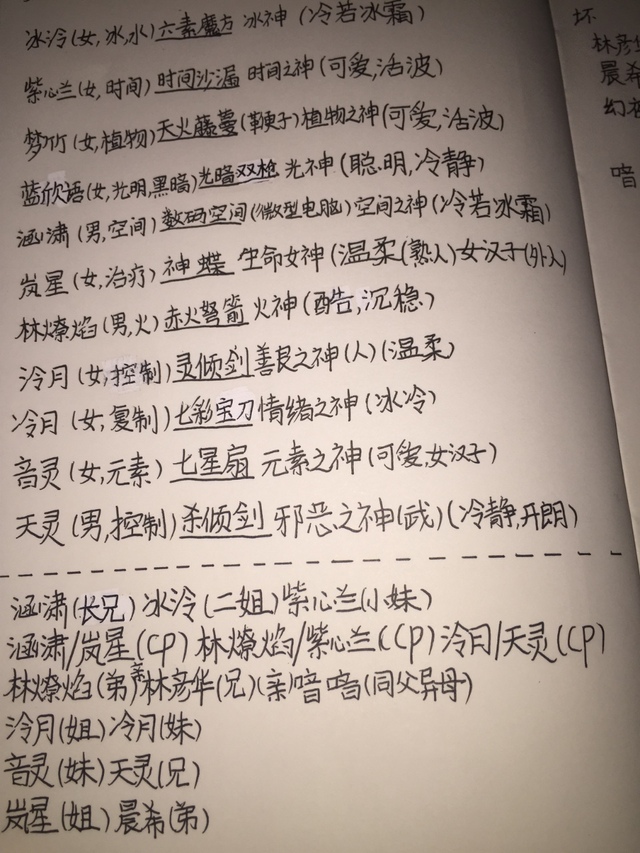 冰泠(女,冰,水)六素魔方 冰神 (冷若冰霜)
紫心兰(女,时间)时间沙漏 时间之神(可爱,活波)
梦竹(女,植物)天火藤蔓(鞭子)植物之神(可爱,活波)
蓝欣语(女,光明,黑暗)光暗双枪 光神(聪明,冷静)
涵肃(男,空间)数码空间(微型电脑)空间之神(冷若冰霜)
岚星(女,治疗)神蝶 生命女神(温柔(熟人)女汉子(外人)
林燎焰(男,火)赤火弩箭 火神(酷,沉稳)
泠月(女,控制)灵倾剑 善良之神(人)(温柔)
冷月(女,复制)七彩宝刀 情绪之神(冰冷)
音灵(女,元素)七星扇 元素之神(可爱,女汉子)
天灵(男,控制)杀倾剑 邪恶之神(武)(冷静,开朗)
涵肃(长兄)冰泠(二姐)紫心兰(小妹)
涵肃/岚星(CP)林燎焰/紫心兰(CP)泠月/天灵(CP)
林燎焰(弟)林彦华(兄)(亲)喑喑(同父异母)
泠月(姐)冷月(妹)
音灵(妹)天灵(兄)
岚星(姐)晨希(弟)
坏
林彦华
晨希
喑